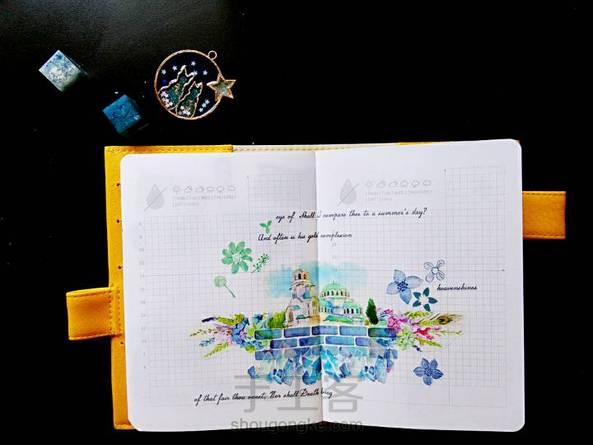 eye of Shall I compare thee to a summer's day?
And often is his gold complexion
heavenshines
of that fair thou owest; Nor shall Death brag
手工客
shougongke.com